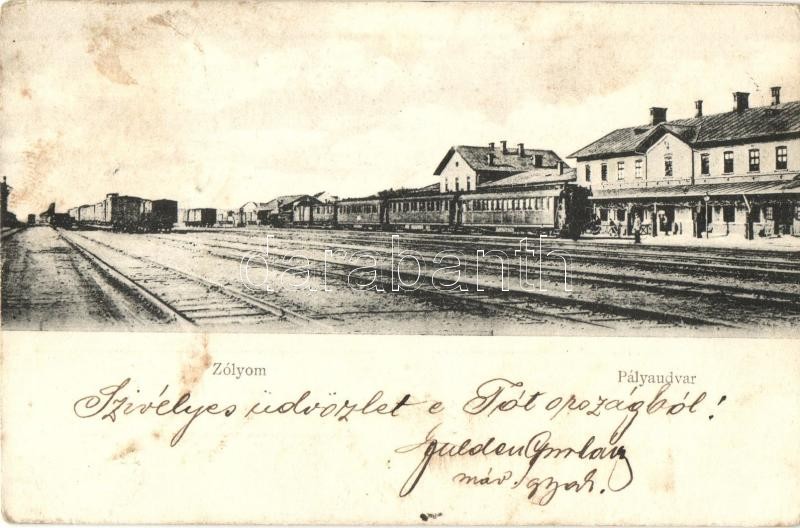 darabanth
Zólyom
Pályaudvar
Szivélyes üdvözlet e Tót országból!
Gulden
máv. gyak.